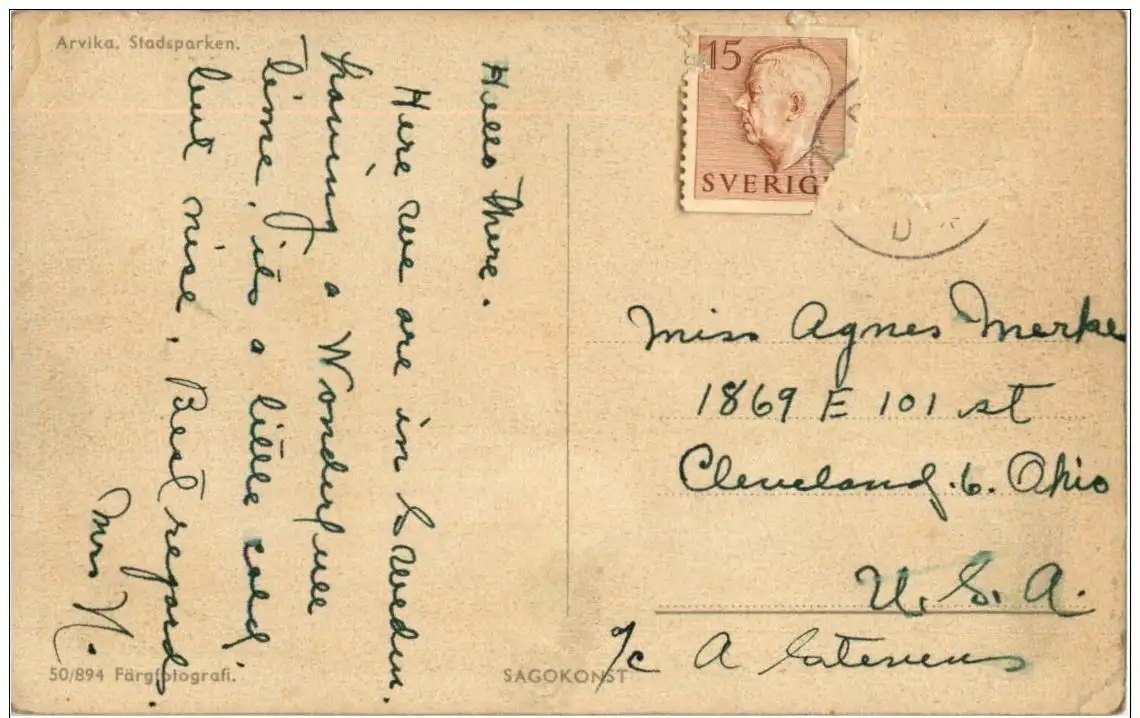 Arvika. Stadsparken.
Hallo There.
Here we are in Sweden.
having a Wonderfull
time, its a little cold
but nise. Best regards.
Mrs N.
15
SVERIG
Miss Agnes Merke
1869 E 101 st
Cleveland. 6. Ohio
U. S. A.
c/o A Stevens
50/894 Färgfotografi.
SAGOKONST